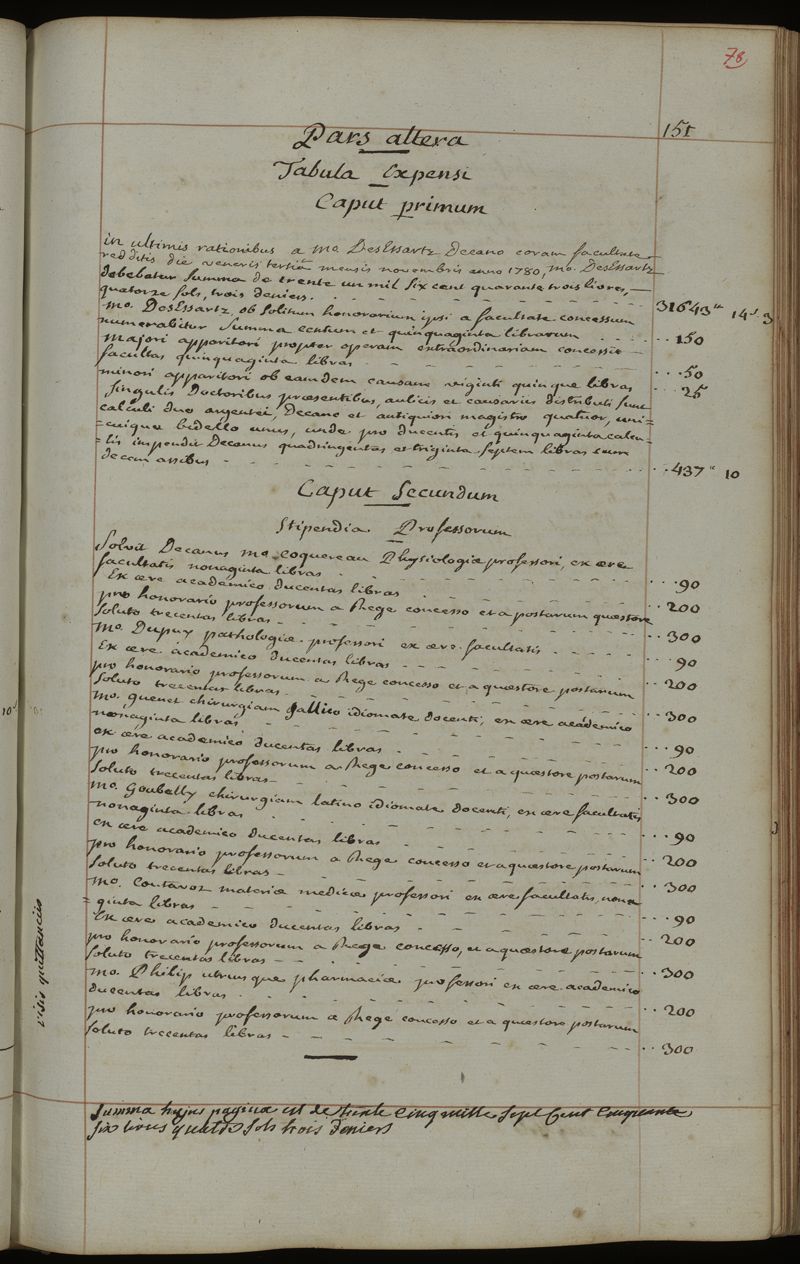 78
151
Pars altera
Tabula Expensi
Caput primum
in ultimis rationibus a Mo. DesEssartz Decano coram facultate
redditis die veneris tertia mensis novembris anno 1780, Mo. DesEssartz
debebatur summa de trente un mil six cent quarante trois livres,
quatorze sols, trois deniers. 31643 14 3
Mo. DesEssartz, ob solitum honorarium ipsi a facultate concessum
numerabitur summa centum et quinquaginta librarum 150
Majori apparitori propter operam extraordinariam concessit
facultas quinquaginta libras 50
minori apparitori ob eamdem causam viginti quinque libras 25
singulis Doctoribus praesentibus, aulicis et causariis distributi sunt
calculi duo argentei, Decano et antiquiori magistro quatuor, uni=
=cuique bedello unus, unde pro ducentis et quinquaginta calcu=
=lis impendit Decanus quadringentas et triginta septem libras cum
decem assibus 437 10
Caput Secundum
Stipendia Professorum
Solvit Decanus Mo. Coquereau Physiologiae professori, ex aere
facultatis nonaginta libras 90
Ex aere academico ducentas libras 200
pro honorario professorum a Rege concesso et a postarum quaestore
soluto trecentas libras 300
Mo. Dupuy pathologiae professori ex aere facultatis 90
Ex aere academico ducentas libras 200
pro honorario professorum a Rege concesso et a quaestore postarum
soluto trecentas libras 300
Mo. Guenet chirurgiam gallico idiomate docenti, ex aere academico
nonaginta libras 90
ex aere academico ducentas libras 200
pro honorario professorum a Rege concesso et a quaestore postarum
soluto trecentas libras 300
Mo. Goubelly chirurgiam latino idiomate docenti, ex aere facultatis
nonaginta libras 90
ex aere academico ducentas libras 200
pro honorario professorum a Rege concesso et a quaestore postarum
soluto trecentas libras 300
Mo. Contavoz materiae medicae professori ex aere facultatis, nona
=ginta libras 90
Ex aere academico ducentas libras 200
pro honorario professorum a Rege concesso, et a quaestore postarum
soluto trecentas libras 300
Mo. Philip utriusque pharmaciae professori ex aere academico
ducentas libras 200
pro honorario professorum a Rege concesso et a quaestore postarum
soluto trecentas libras 300
visis quittanciis
Summa hujus paginae est de trente cinq mille sept cent cinquante
six livres quatre sols trois deniers